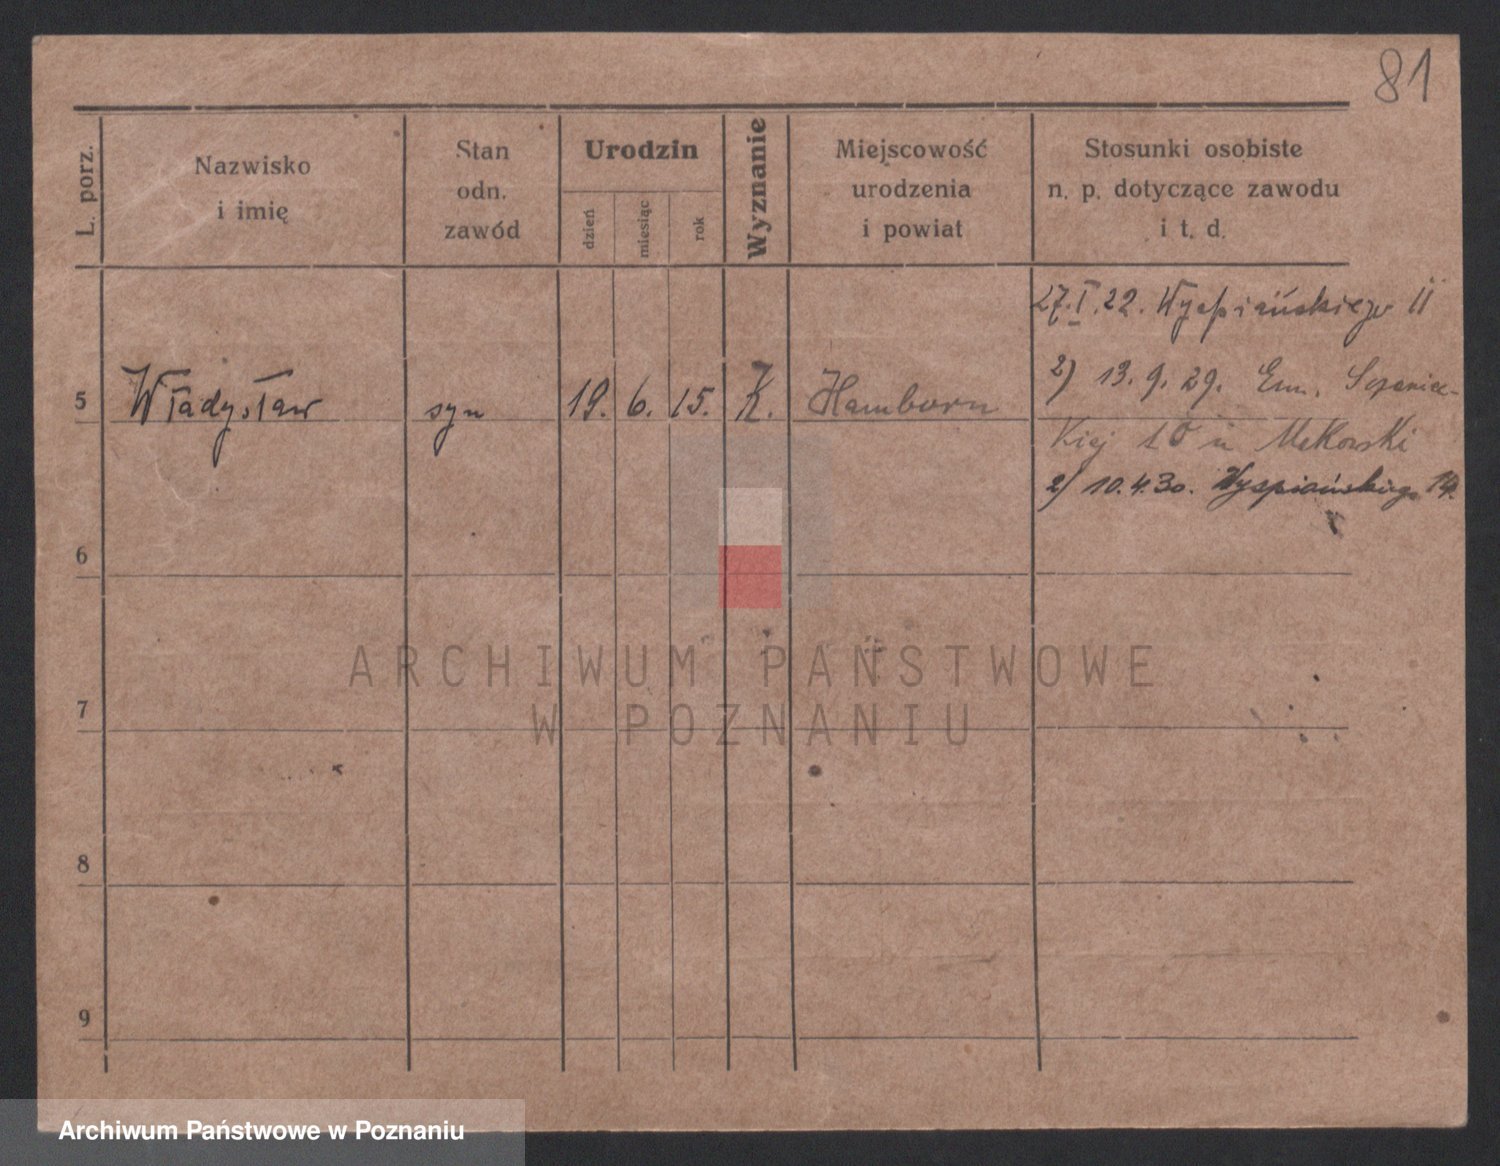 81
L. porz.
Nazwisko
i imię
Stan
odn.
zawód
Urodzin
dzień
miesiąc
rok
Wyznanie
Miejscowość
urodzenia
i powiat
Stosunki osobiste
n. p. dotyczące zawodu
i t. d.
27.I.22. Wyspiańskiego 11
5 Władysław syn 19. 6. 15. K. Hamborn
2) 13. 9. 29. Em. Szczaniec-
kiej 10 u
2) 10.4.30. Wyspiańskiego
6
7
8
9
ARCHIWUM PAŃSTWOWE
W POZNANIU
Archiwum Państwowe w Poznaniu